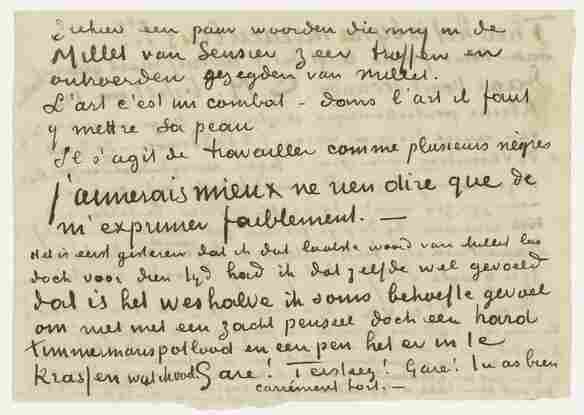 Ziehier een paar woorden die mij in de
Millet van Sensier zeer troffen en
ontroerden gezegden van Millet.
L'art c'est un combat – dans l'art il faut
y mettre sa peau
Il s'agit de travailler comme plusieurs nègres
J'aimerais mieux ne rien dire que de
m'exprimer faiblement. —
Het is eerst gisteren dat ik dat laatste woord van Millet las
doch voor dien tijd had ik dat zelfde wel gevoeld
dat is het weshalve ik soms behoefte gevoel
om niet met een zacht penseel doch een hard
timmermanspotlood en een pen het er in te
krassen Gare! Tersteeg! Gare! Tu as bien
carrément tort. —